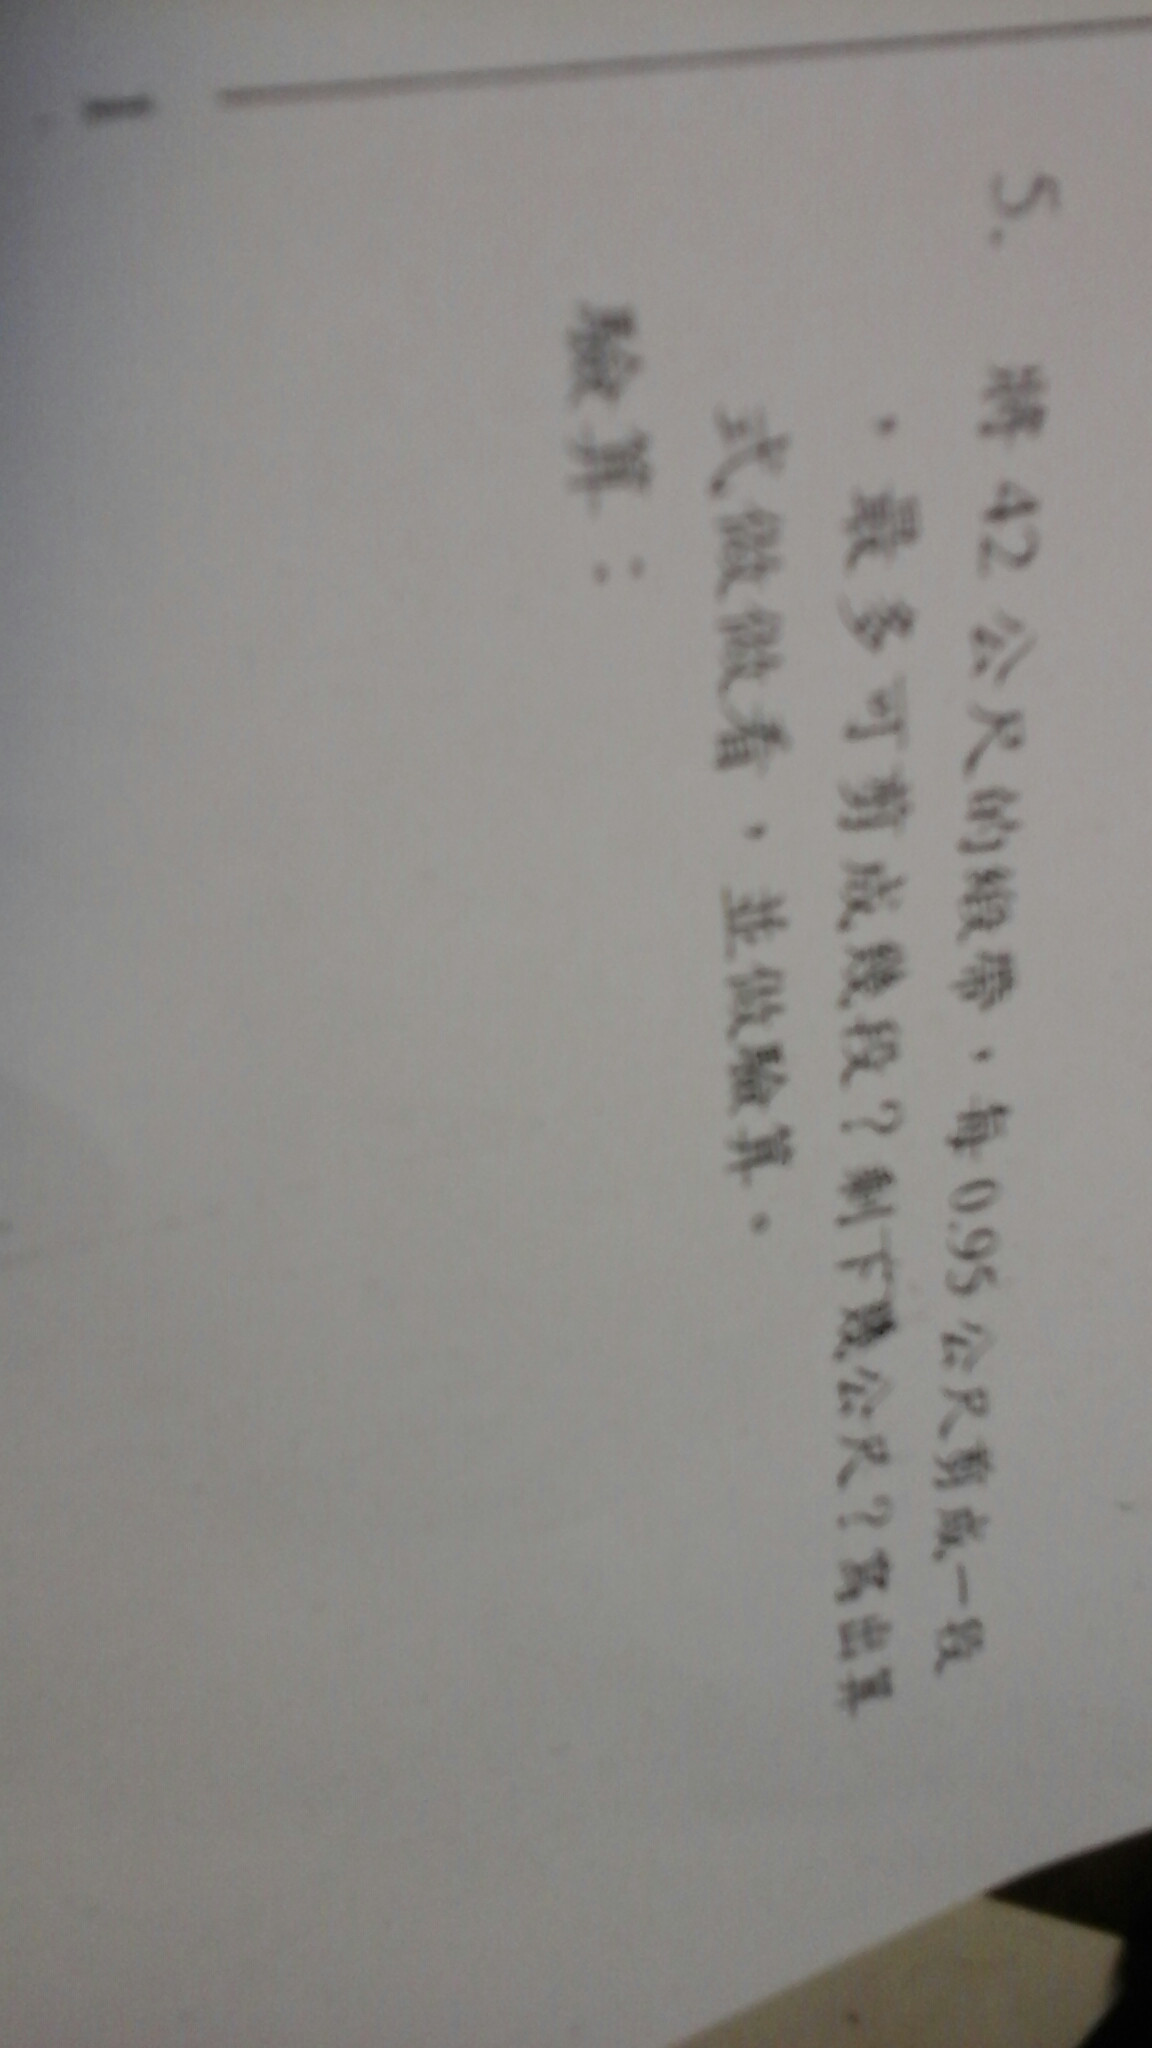 5. 將 42 公尺的緞帶，每 0.95 公尺剪成一段
，最多可剪成幾段？剩下幾公尺？寫出算
式做做看，並做驗算。
驗算：